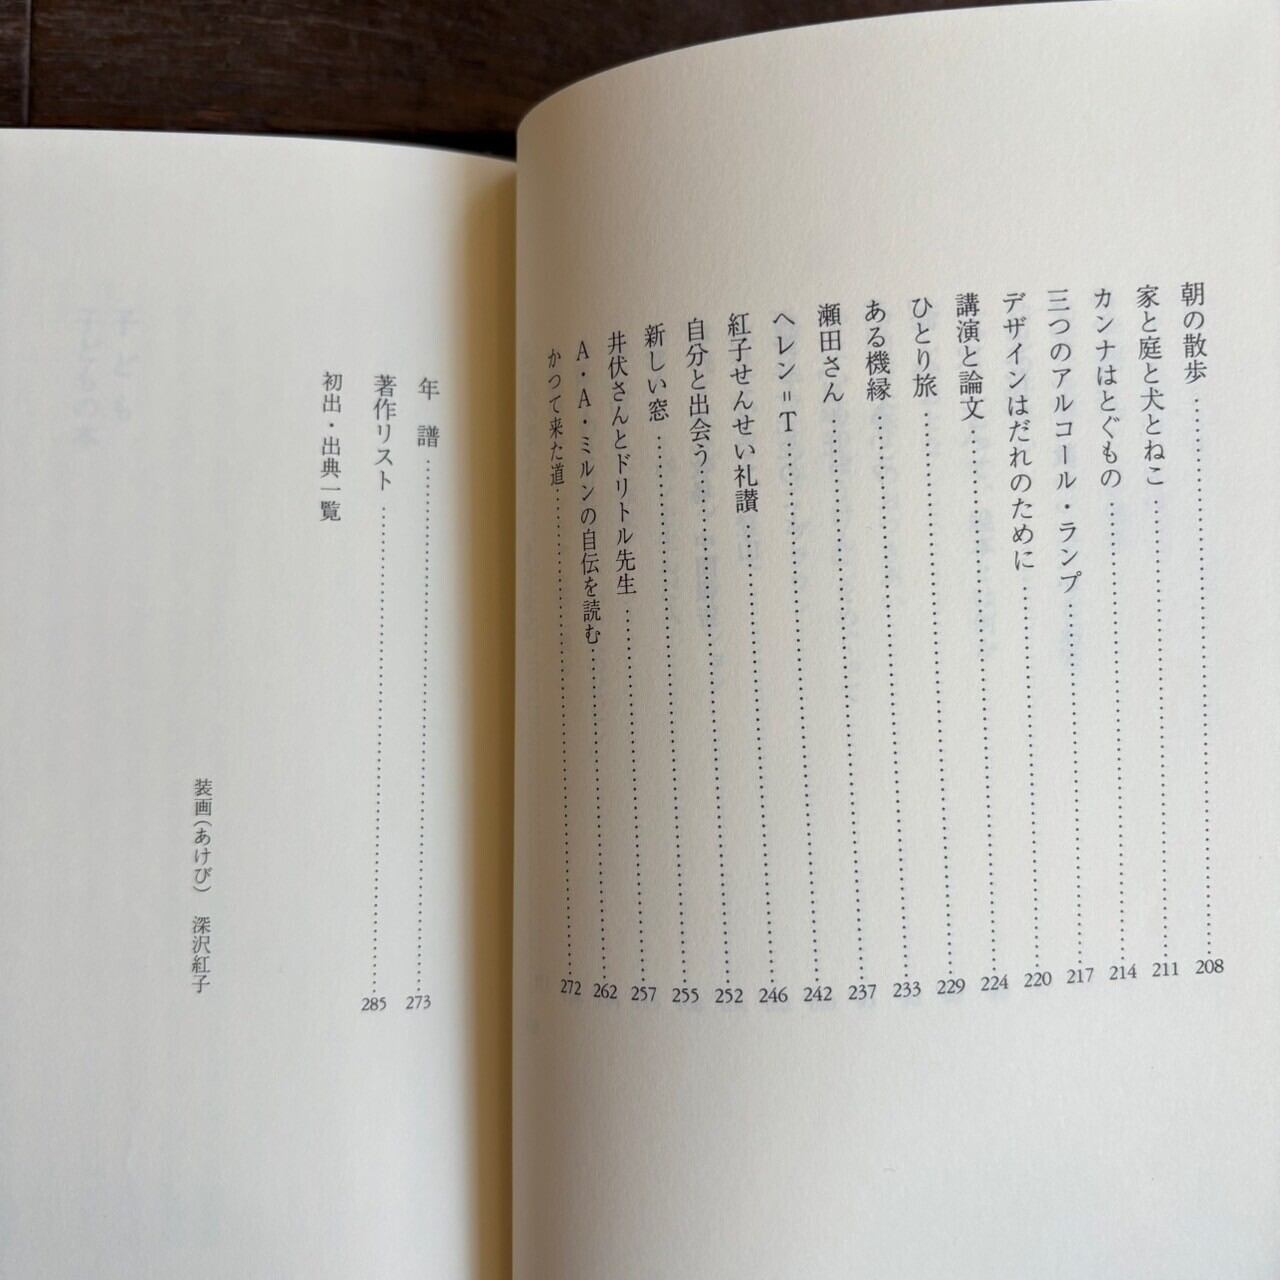 朝の散歩……208
家と庭と犬とねこ……211
カンナはとぐもの……214
三つのアルコール・ランプ……217
デザインはだれのために……220
講演と論文……224
ひとり旅……229
ある機縁……233
瀬田さん……237
ヘレン=T……242
紅子せんせい礼讃……246
自分と出会う……252
新しい窓……255
井伏さんとドリトル先生……257
A・A・ミルンの自伝を読む……262
かつて来た道……272
年 譜……273
著作リスト……285
初出・出典一覧
装画(あけび) 深沢紅子